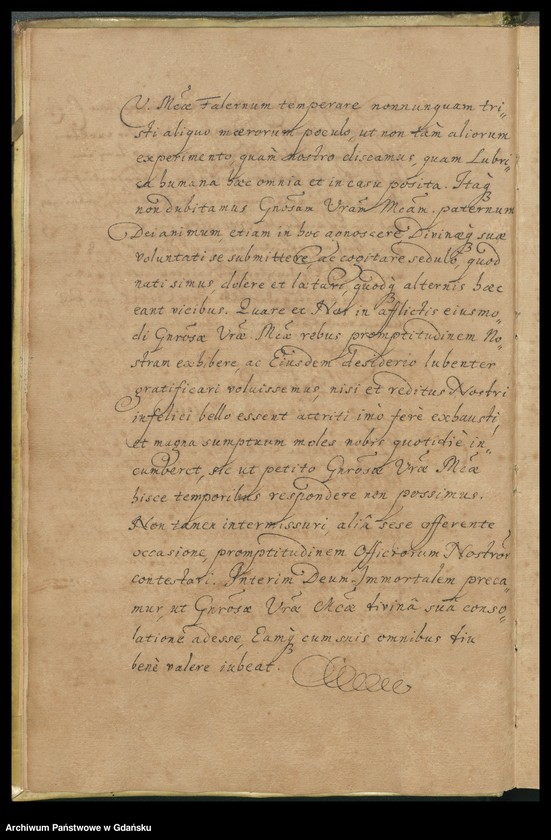 V. Mcæ Falernum temperare nonnunquam tri„
sti aliquo mœrorum poculo, ut non tàm aliorum
experimento, quàm nostro discamus, quam Lubri„
ca humana hæc omnia et in casu posita. Itaq
non dubitamus Gnosam Vram Mcam. paternum
Dei animum etiam in hoc agnoscere Divinæq suæ
voluntati se submittere, ac cogitare sedulo, quod
nati simus dolere et lætari, quodq alternis hæc
eant vicibus. Quare et Nos in afflictis eiusmo„
di Gnrosæ Vræ Mcæ rebus promptitudinem No„
stram exhibere, ac Eiusdem desiderio lubenter
gratificari voluissemus, nisi et reditus Nostri
infelici bello essent attriti imo ferè exhausti,
et magna sumptuum moles nobis quotidiè in„
cumberet, sic ut petito Gnrosæ Vræ Mcæ
hisce temporibus respondere non possimus.
Non tamen intermissuri, aliâ sese offerente
occasione, promptitudinem Officiorum Nostror
contestari. Interim Deum Immortalem preca„
mur, ut Gnrosæ Vræ Mcæ divinâ suâ conso„
latione adesse, Eamq cum suis omnibus diu
benè valere iubeat.
Archiwum Państwowe w Gdańsku